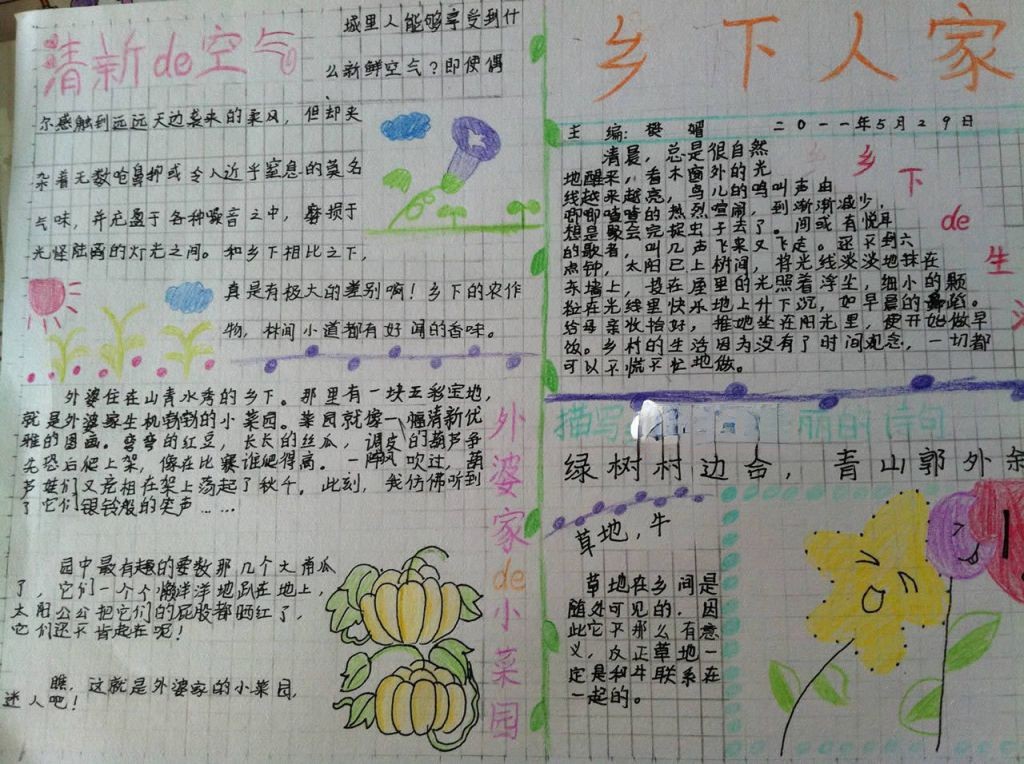 清新de空气
城里人能够享受到什
么新鲜空气？即使偶
尔感触到远远天边袭来的柔风，但却夹
杂着无数呛鼻抑或令人近乎窒息的莫名
气味，并充盈于各种噪音之中，磨损于
光怪陆离的灯光之间。和乡下相比之下，
真是有极大的差别啊！乡下的农作
物，林间小道都有好闻的香味。
外婆家de小菜园
外婆住在山青水秀的乡下。那里有一块五彩宝地，
就是外婆家生机勃勃的小菜园。菜园就像一幅清新优
雅的图画。弯弯的红豆，长长的丝瓜，调皮的葫芦争
先恐后爬上架，像在比赛谁爬得高。一阵风吹过，葫
芦娃们又竞相在架上荡起了秋千。此刻，我仿佛听到
了它们银铃般的笑声……
园中最有趣的要数那几个大南瓜
了，它们一个个懒洋洋地趴在地上，
太阳公公把它们的屁股都晒红了，
它们还不肯起在呢！
瞧，这就是外婆家的小菜园，
迷人吧！
乡下人家
主编：樊媚 二0一一年5月29日
乡下de生
清晨，总是很自然
地醒来，看木窗外的光
线越来越亮，鸟儿的鸣叫声由
唧唧喳喳的热烈喧闹，到渐渐减少，
想是聚会完捉虫子去了。间或有悦耳
的歌者，叫几声飞来又飞走。还不到六
点钟，太阳已上树间，将光线淡淡地抹在
东墙上，接在屋里的光照着浮尘，细小的颗
粒在光线里快乐地上升下沉，如早晨的舞蹈。
给母亲收拾好，推她坐在阳光里，便开始做早
饭。乡村的生活因为没有了时间观念，一切都
可以不慌不忙地做。
描写 丽的诗句
绿树村边合，青山郭外斜
草地，牛
草地在乡间是
随处可见的，因
此它不那么有意
义，反正草地一
定是和牛联系在
一起的。